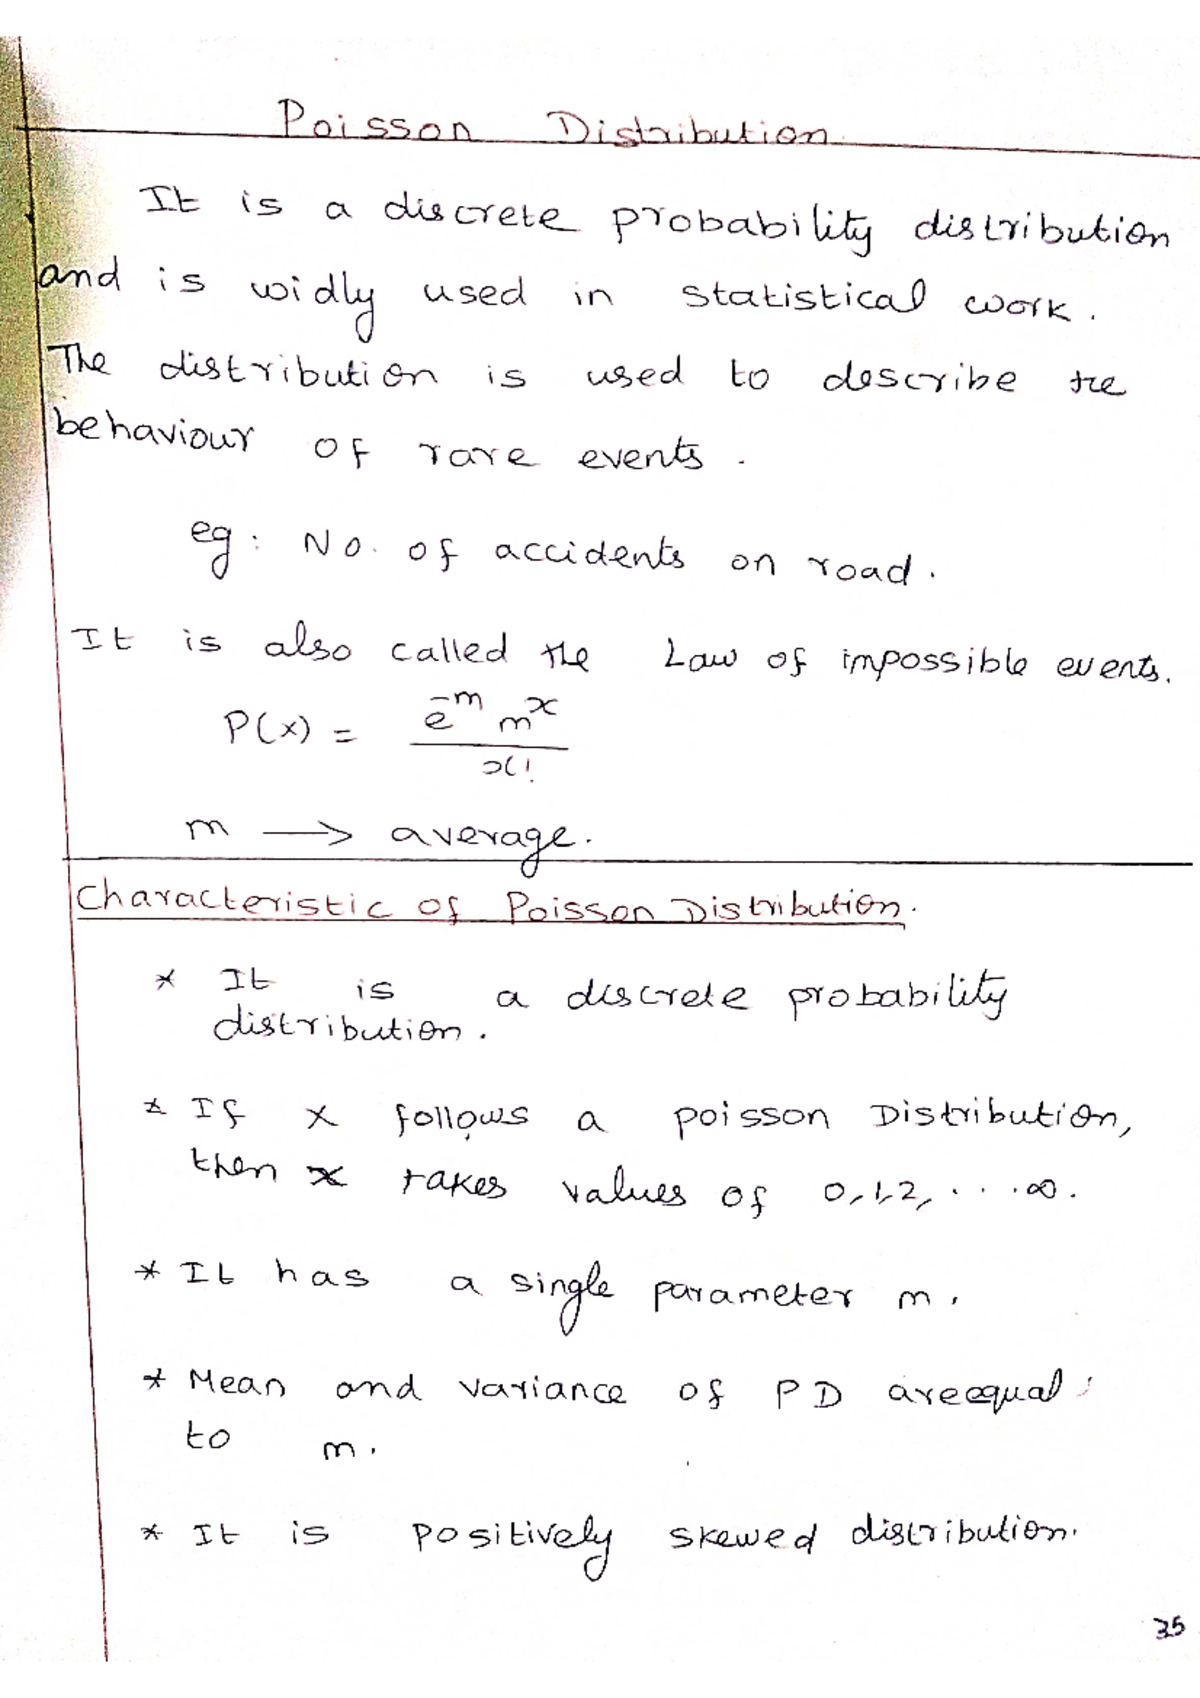 Poisson Distribution
It is a discrete probability distribution
and is widly used in statistical work.
The distribution is used to describe the
behaviour of rare events.
eg: No. of accidents on road.
It is also called the Law of impossible events.
P(x) = e^-m m^x / x!
m → average.
Characteristic of Poisson Distribution.
* It is a discrete probability
distribution.
* If x follows a poisson Distribution,
then x takes values of 0,1,2, . . . ∞.
* It has a single parameter m.
* Mean and variance of PD are equal
to m.
* It is positively skewed distribution.
35